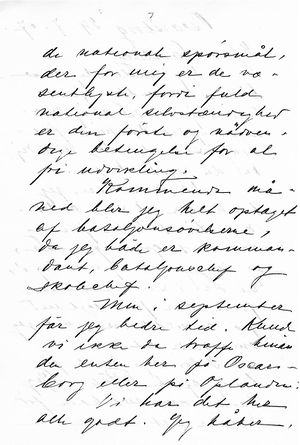 de nationale spørsmål,
der for mig er de væ-
sentligste, fordi fuld
national selvstændighed
er den første og nødven-
dige betingelse for al
fri udvikling.
Kommende må-
ned blir jeg helt optaget
af bataljonsøvelserne,
da jeg både er komman-
dant, bataljonschef og
skolechef.
Men i september
får jeg bedre tid. Kunde
vi ikke da træffe hinan-
den enten her på Oscars-
borg eller på Oplandene?
Vi har det her
alle godt. Jeg håber,